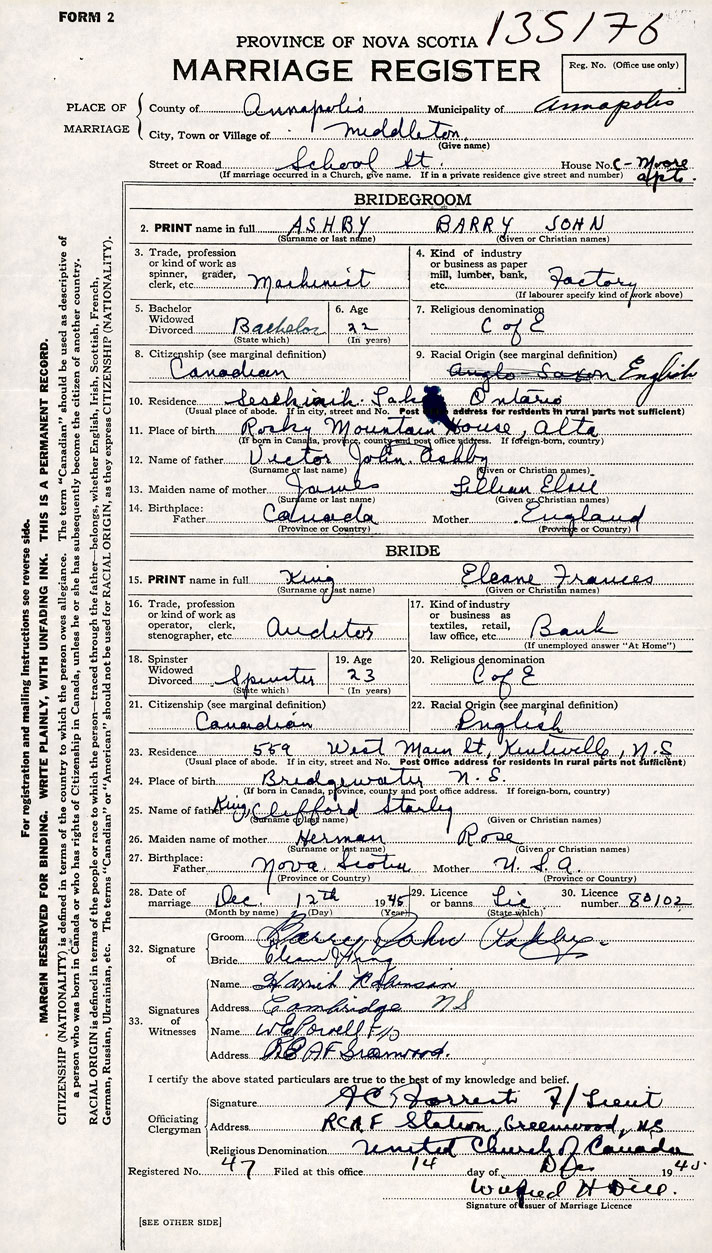 FORM 2
135176
PROVINCE OF NOVA SCOTIA
MARRIAGE REGISTER
Reg. No. (Office use only)
PLACE OF MARRIAGE
County of Annapolis Municipality of Annapolis
City, Town or Village of Middleton
(Give name)
Street or Road School St. House No. C- Moore apts.
(If marriage occurred in a Church, give name. If in a private residence give street and number)
BRIDEGROOM
2. PRINT name in full ASHBY BARRY JOHN
(Surname or last name) (Given or Christian names)
3. Trade, profession or kind of work as spinner, grader, clerk, etc. Machinist
4. Kind of industry or business as paper mill, lumber, bank, etc. Factory
(If labourer specify kind of work above)
5. Bachelor Widowed Divorced Bachelor
(State which)
6. Age 22
(In years)
7. Religious denomination C of E
8. Citizenship (see marginal definition) Canadian
9. Racial Origin (see marginal definition) Anglo Saxon English
10. Residence Lake Ontario
(Usual place of abode. If in city, street and No. Post Office address for residents in rural parts not sufficient)
11. Place of birth Rocky Mountain House, Alta
(If born in Canada, province, county and post office address. If foreign-born, country)
12. Name of father Victor John Ashby
(Surname or last name) (Given or Christian names)
13. Maiden name of mother James Lillian Elsie
(Surname or last name) (Given or Christian names)
14. Birthplace: Father Canada Mother England
(Province or Country) (Province or Country)
BRIDE
15. PRINT name in full King Eleane Frances
(Surname or last name) (Given or Christian names)
16. Trade, profession or kind of work as operator, clerk, stenographer, etc. Auditor
17. Kind of industry or business as textiles, retail, law office, etc. Bank
(If unemployed answer "At Home")
18. Spinster Widowed Divorced Spinster
(State which)
19. Age 23
(In years)
20. Religious denomination C of E
21. Citizenship (see marginal definition) Canadian
22. Racial Origin (see marginal definition) English
23. Residence 559 West Main St, Kentville, N.S
(Usual place of abode. If in city, street and No. Post Office address for residents in rural parts not sufficient)
24. Place of birth Bridgewater N.S.
(If born in Canada, province, county and post office address. If foreign-born, country)
25. Name of father King, Clifford Stanley
(Surname or last name) (Given or Christian names)
26. Maiden name of mother Herman Rose
(Surname or last name) (Given or Christian names)
27. Birthplace: Father Nova Scotia Mother U.S.A.
(Province or Country) (Province or Country)
28. Date of marriage Dec. 12th 1945
(Month by name) (Day) (Year)
29. Licence or banns Lic
(State which)
30. Licence number 80102
32. Signature of
Groom Barry John Ashby.
Bride Eleane F King
33. Signatures of Witnesses
Name Harriet Robinson
Address Cambridge NS
Name W E Powell F/O
Address RCAF Greenwood.
I certify the above stated particulars are true to the best of my knowledge and belief.
Officiating Clergyman
Signature A C Forrest F/Lieut
Address RCAF Station, Greenwood, NS
Religious Denomination United Church of Canada
Registered No. 47 Filed at this office 14 day of Dec 1945
Wilfred H Dill.
Signature of Issuer of Marriage Licence
[SEE OTHER SIDE]
For registration and mailing Instructions see reverse side.
MARGIN RESERVED FOR BINDING. WRITE PLAINLY, WITH UNFADING INK. THIS IS A PERMANENT RECORD.
CITIZENSHIP (NATIONALITY) is defined in terms of the country to which the person owes allegiance. The term "Canadian" should be used as descriptive of
a person who was born in Canada or who has rights of Citizenship in Canada, unless he or she has subsequently become the citizen of another country.
RACIAL ORIGIN is defined in terms of the people or race to which the person—traced through the father—belongs, whether English, Irish, Scottish, French,
German, Russian, Ukrainian, etc. The terms "Canadian" or "American" should not be used for RACIAL ORIGIN, as they express CITIZENSHIP (NATIONALITY).